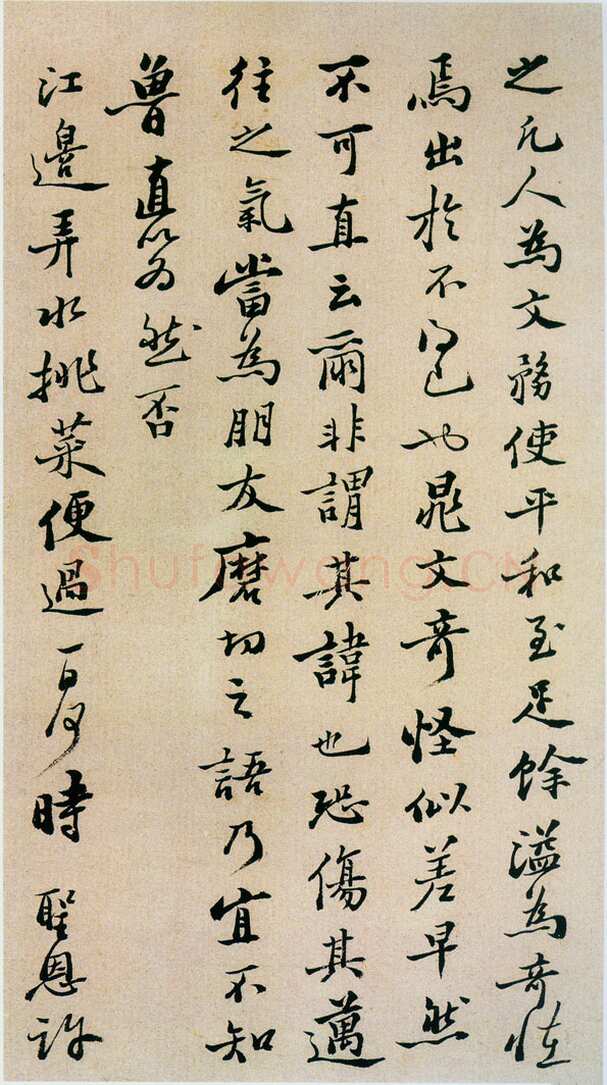 之凡人為文務使平和至足餘溢為奇怪
焉出於不得已也晁文奇怪似差早然
不可直云爾非謂其諱也恐傷其邁
往之氣當為朋友磨切之語乃宜不知
魯直以為然否
江邊弄水挑菜便過一日時 聖恩許
Shufawang.CN